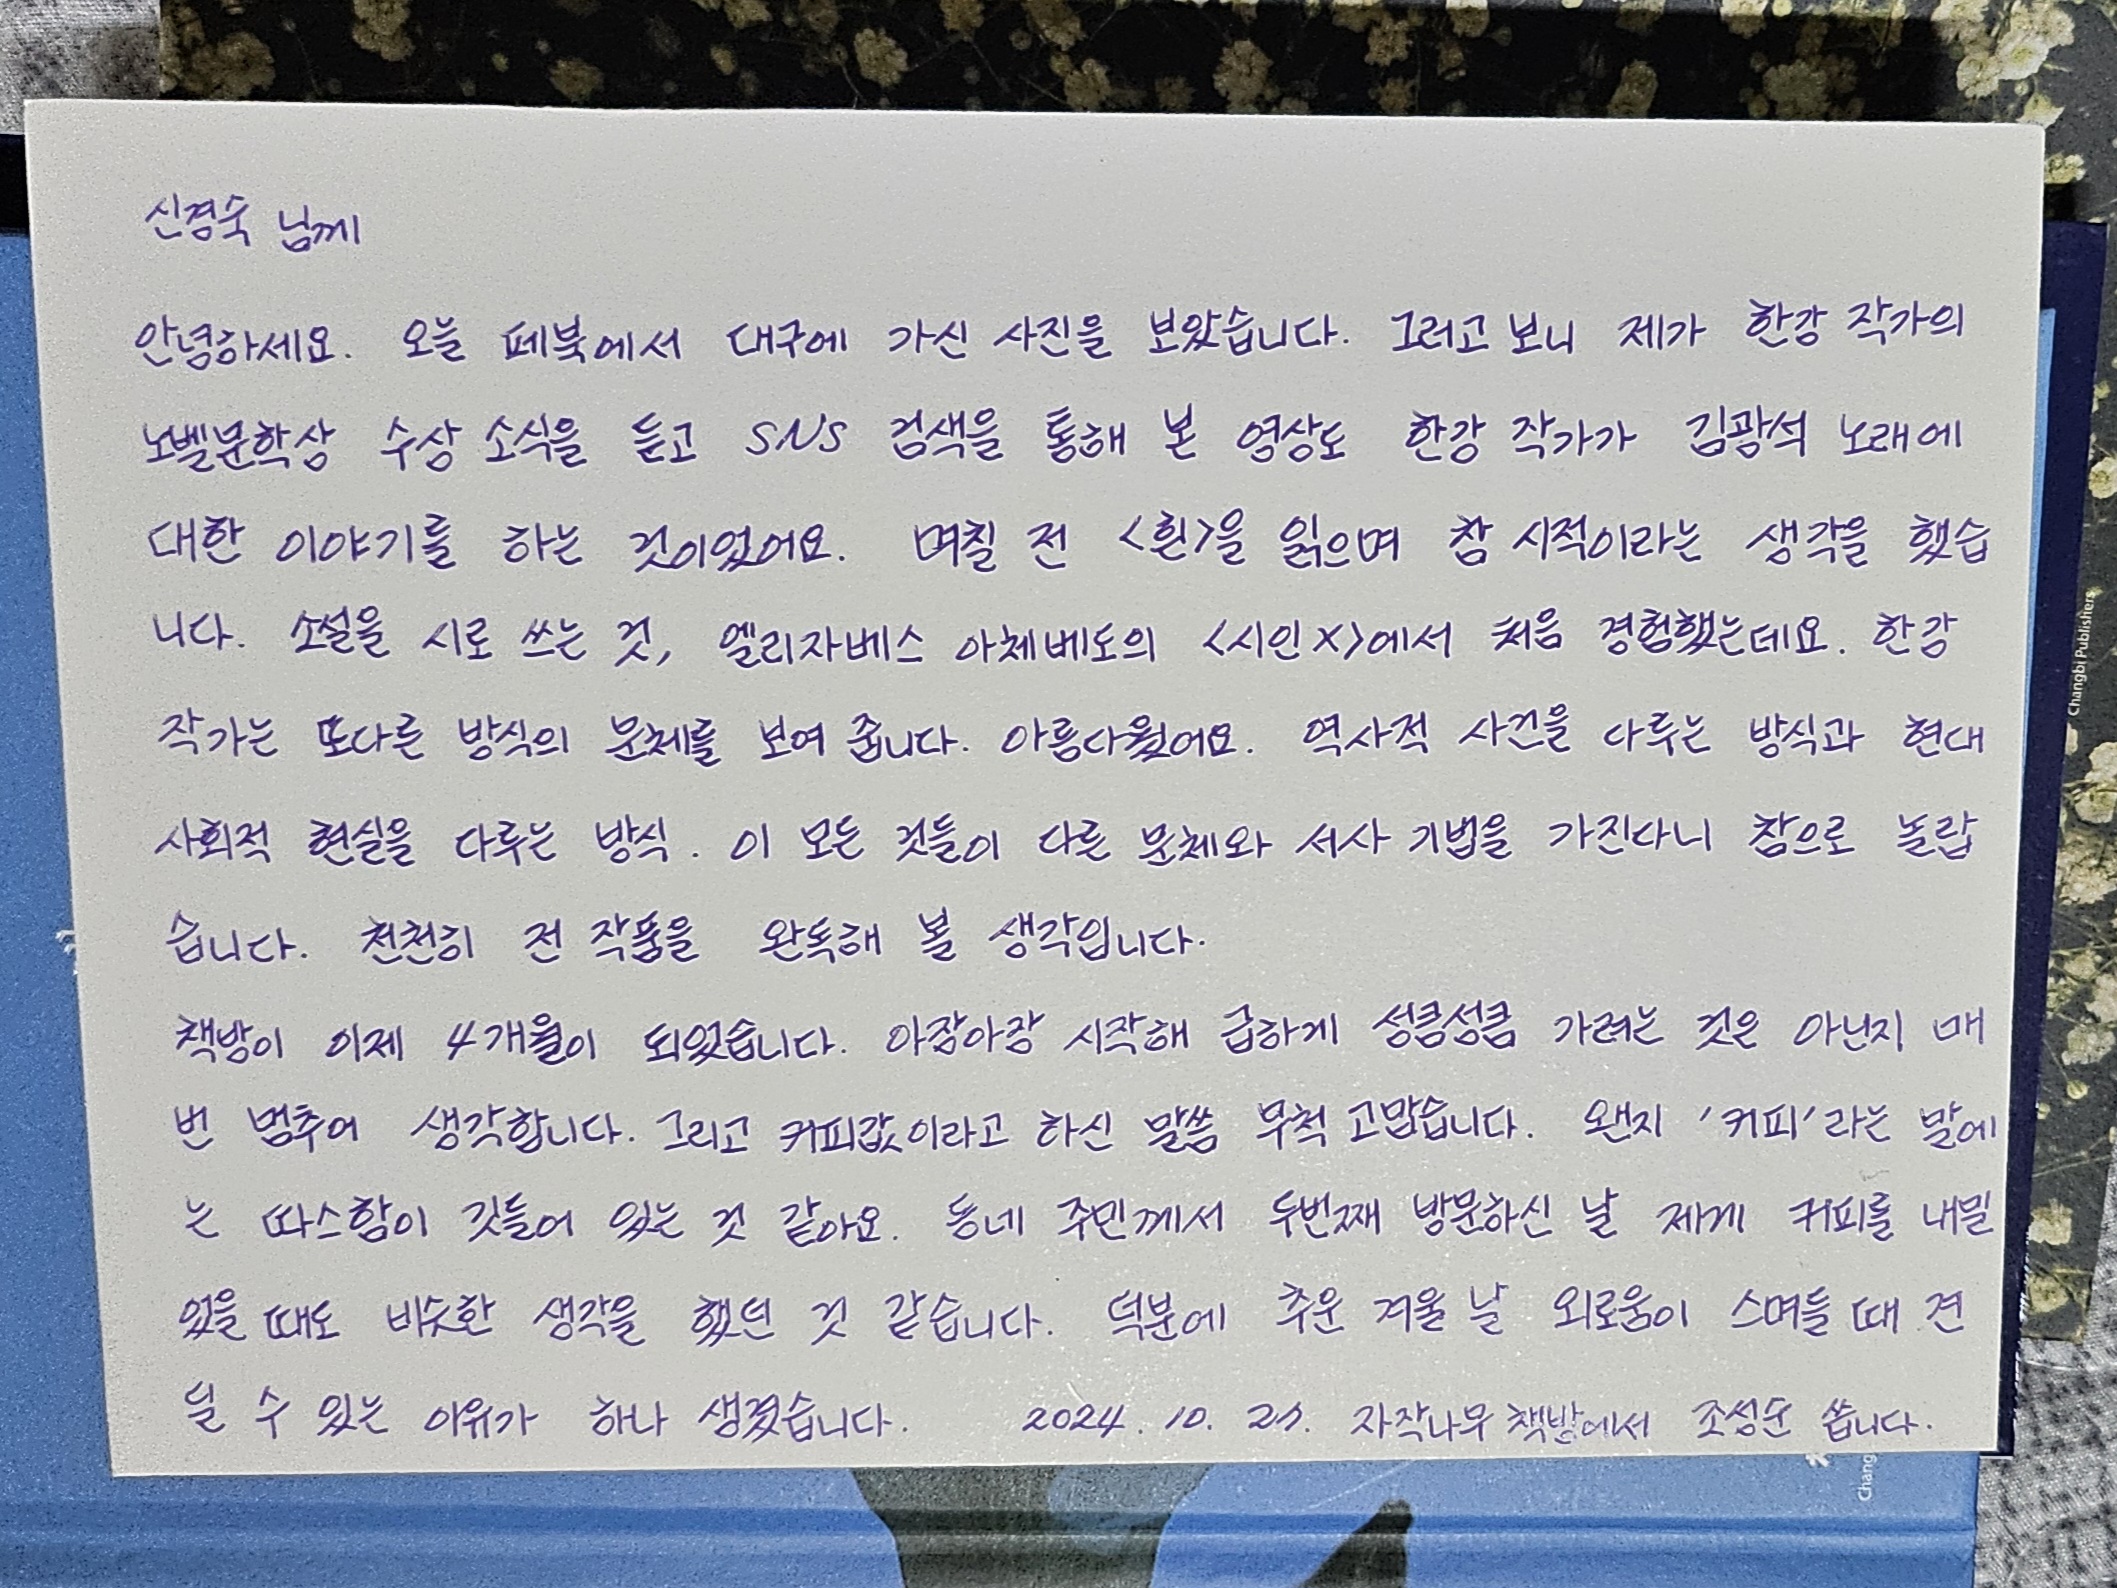 신경숙 님께
안녕하세요. 오늘 페북에서 대구에 가신 사진을 보았습니다. 그러고 보니 제가 한강 작가의
노벨문학상 수상 소식을 듣고 SNS 검색을 통해 본 영상도 한강 작가가 김광석 노래에
대한 이야기를 하는 것이었어요. 며칠 전 <흰>을 읽으며 참 시적이라는 생각을 했습
니다. 소설을 시로 쓰는 것, 엘리자베스 아체베도의 <시인 X>에서 처음 경험했는데요. 한강
작가는 또다른 방식의 문체를 보여 줍니다. 아름다웠어요. 역사적 사건을 다루는 방식과 현대
사회적 현실을 다루는 방식. 이 모든 것들이 다른 문체와 서사 기법을 가진다니 참으로 놀랍
습니다. 천천히 전 작품을 완독해 볼 생각입니다.
책방이 이제 4개월이 되었습니다. 아장아장 시작해 급하게 성큼성큼 가려는 것은 아닌지 매
번 멈추어 생각합니다. 그리고 커피값이라고 하신 말씀 무척 고맙습니다. 왠지 '커피'라는 말에
는 따스함이 깃들어 있는 것 같아요. 동네 주민께서 두번째 방문하신 날 제게 커피를 내밀
었을 때도 비슷한 생각을 했던 것 같습니다. 덕분에 추운 겨울 날 외로움이 스며들 때 견
딜 수 있는 이유가 하나 생겼습니다. 2024. 10. 27. 자작나무 책방에서 조성순 씁니다.
Changbi Publishers
Chang